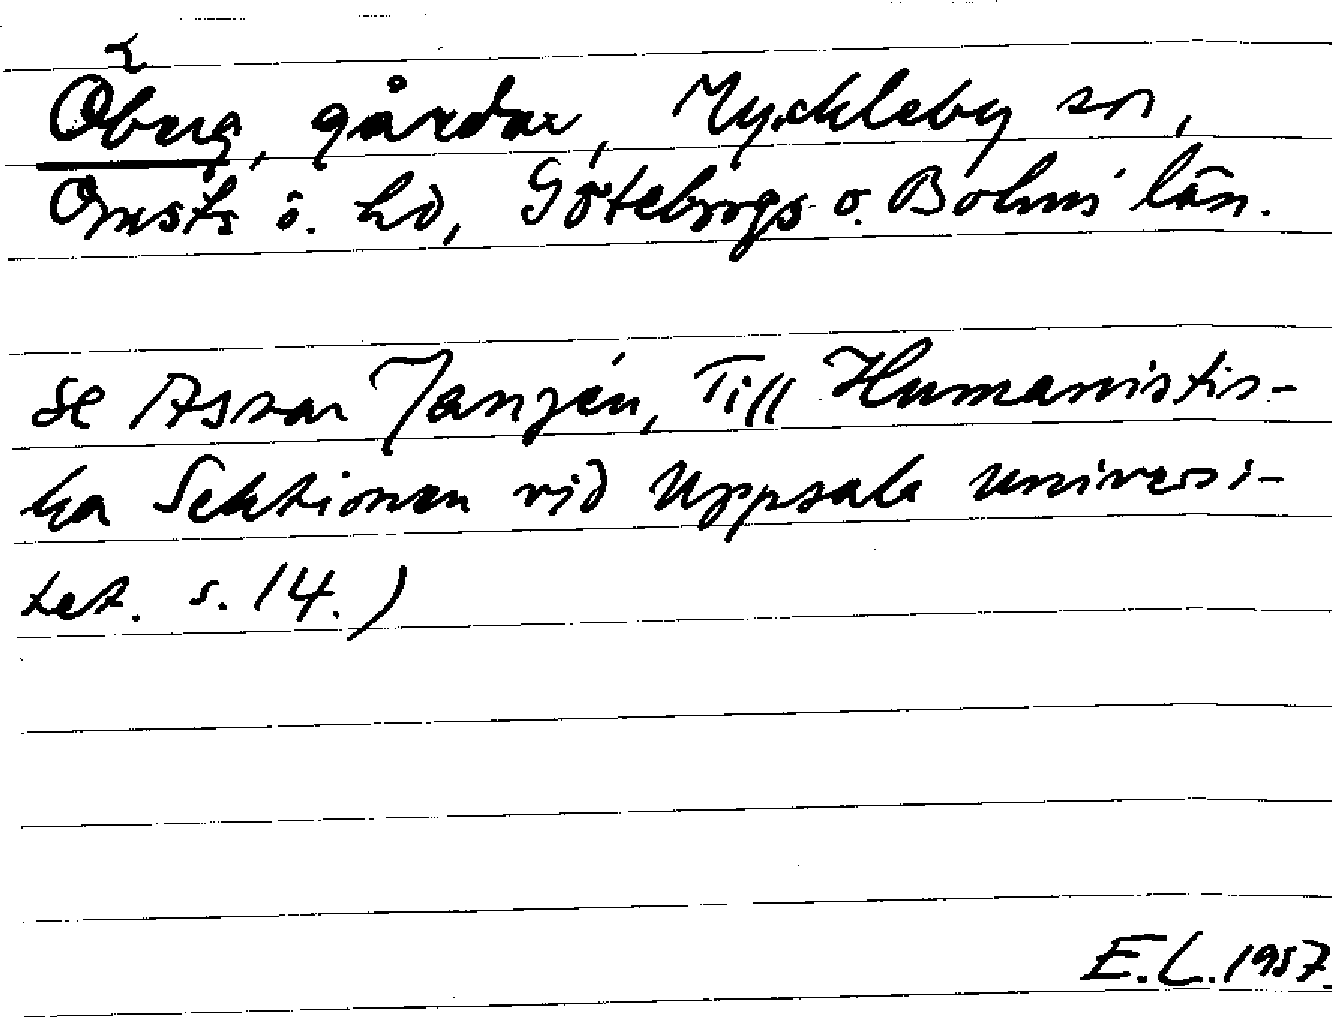 Öberg, gårdar, Myckleby sn,
Orusts ö. hd, Göteborgs o. Bohus län.
se Assar Janzén, Till Humanistis-
ka Sektionen vid Uppsala universi-
tet. s. 14.)
E.L. 1957